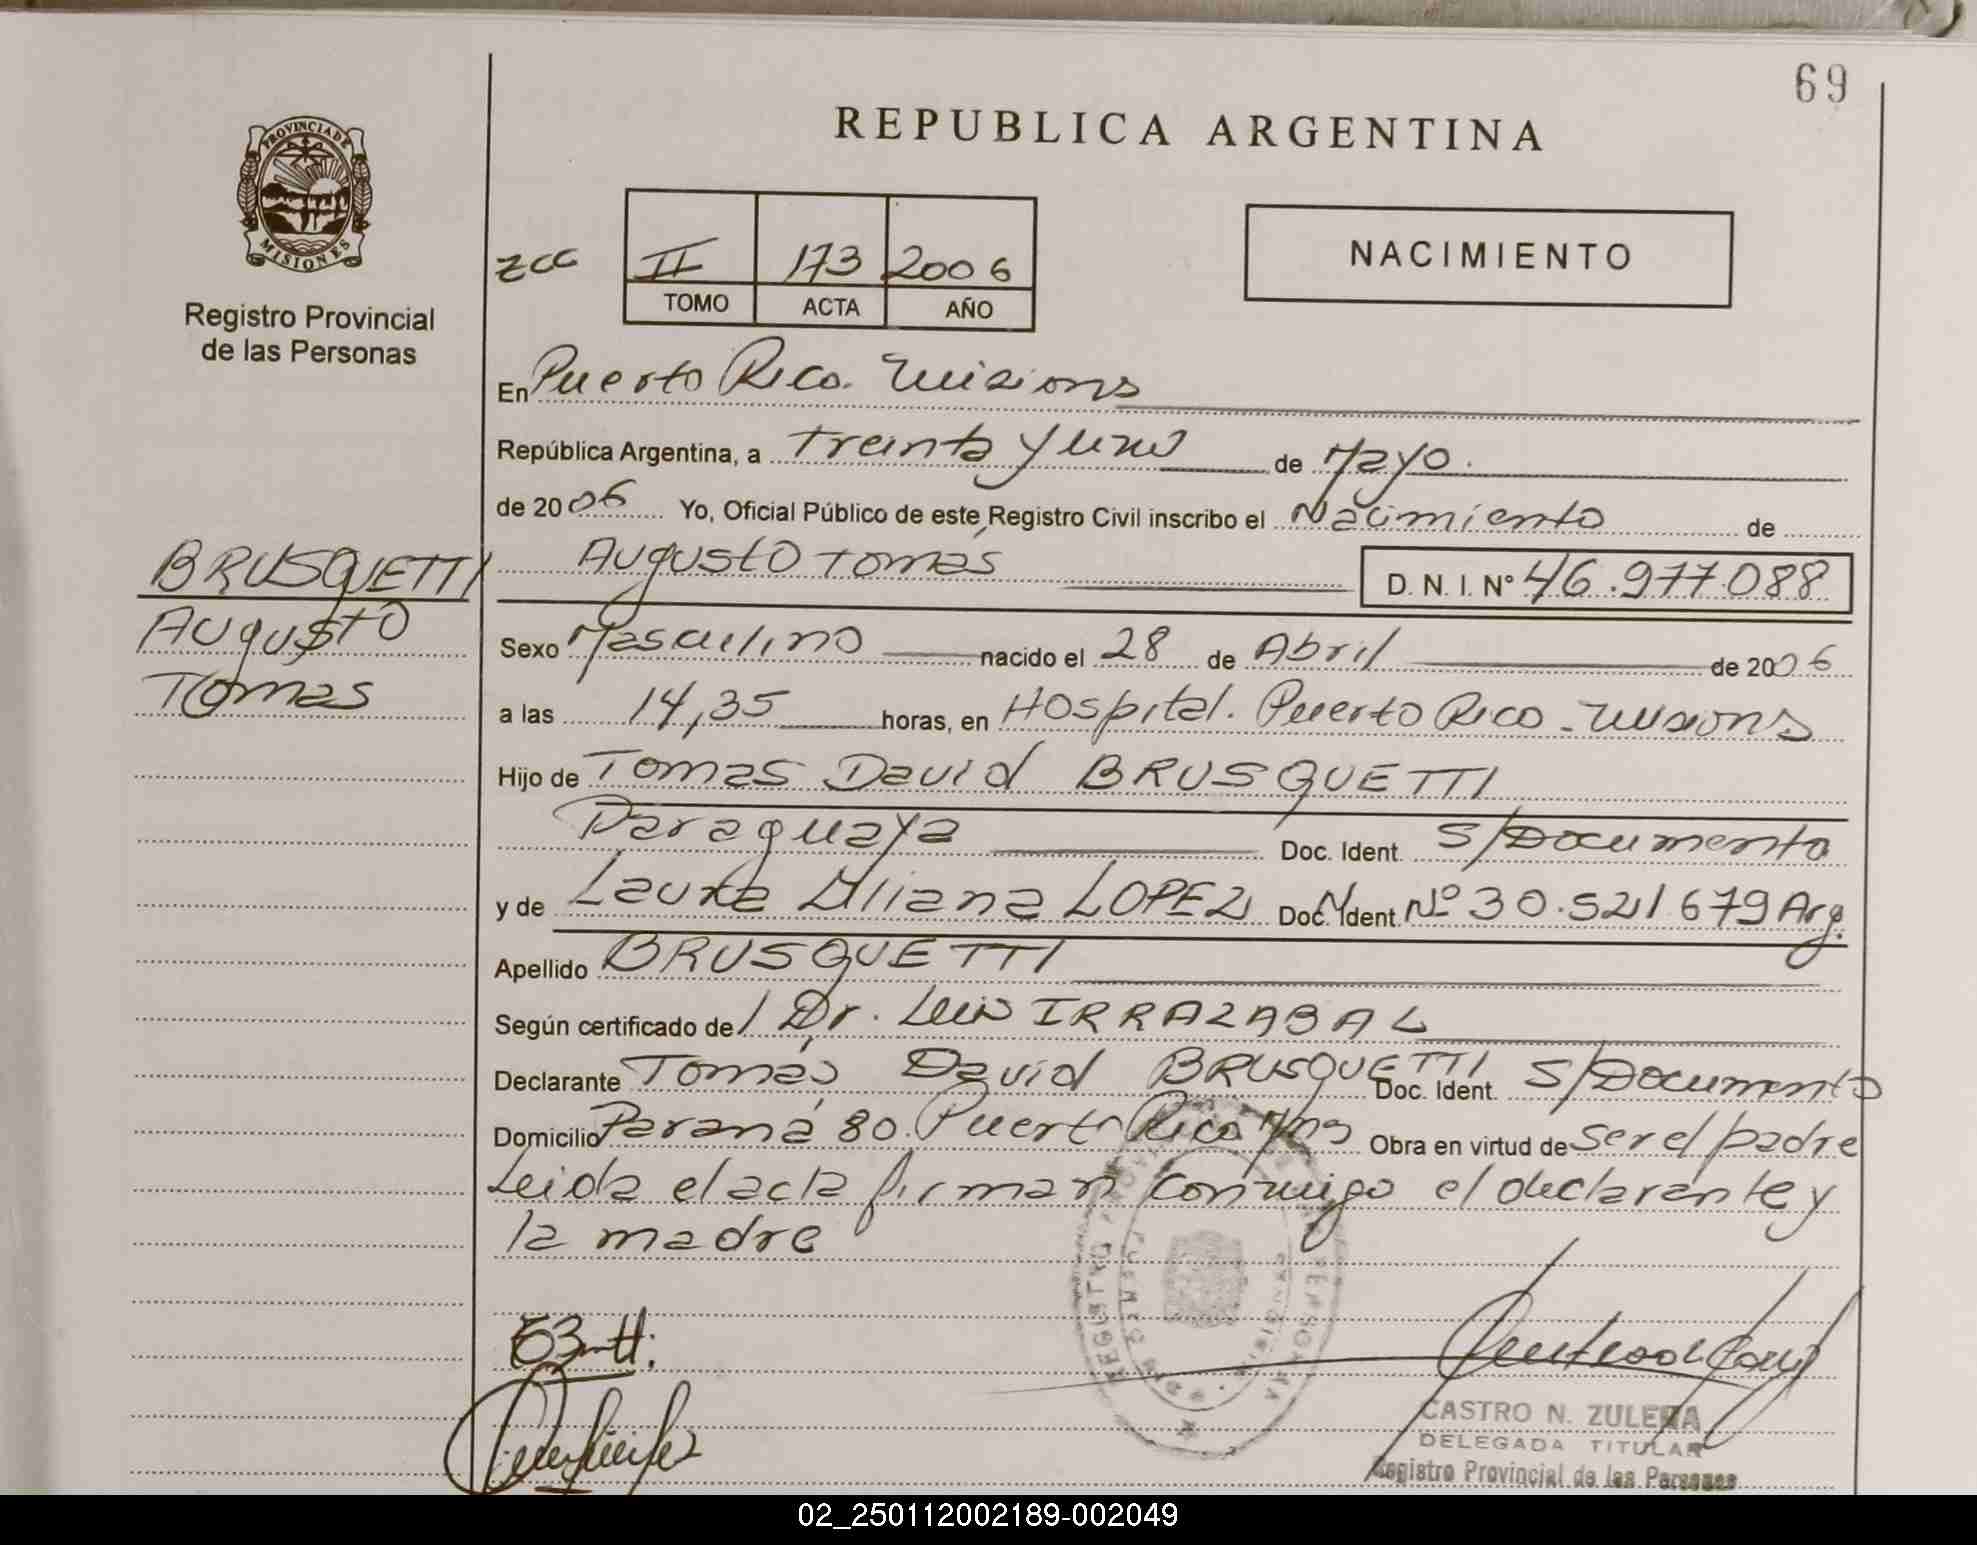 69
REPUBLICA ARGENTINA
PROVINCIA DE
MISIONES
Registro Provincial
de las Personas
zcc II 173 2006
TOMO ACTA AÑO
NACIMIENTO
En Puerto Rico. Misions
República Argentina, a Treinta y uno de Mayo.
de 2006 Yo, Oficial Público de este Registro Civil inscribo el Nacimiento de
Augusto Tomás D. N. I. Nº 46.977.088
BRUSQUETTI
Augusto
Tomas
Sexo Masculino nacido el 28 de Abril de 2006
a las 14,35 horas, en Hospital. Puerto Rico - Misions
Hijo de Tomas David BRUSQUETTI
Paraguaya Doc. Ident. S/Documento
y de Laura Liliana LOPEZ Doc. Ident. Nº 30.521.679 Arg.
Apellido BRUSQUETTI
Según certificado de Dr. Luis IRRAZABAL
Declarante Tomás David BRUSQUETTI Doc. Ident. S/Documento
Domicilio Paraná 80. Puerto Rico Mns Obra en virtud de ser el padre
Leida el acta firman conmigo el declarante y
la madre
CASTRO N. ZULEMA
DELEGADA TITULAR
Registro Provincial de las Personas
02_250112002189-002049